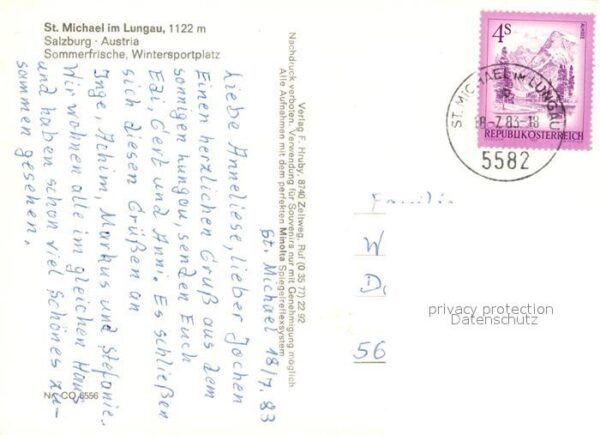 St. Michael im Lungau, 1122 m
Salzburg · Austria
Sommerfrische, Wintersportplatz
St. Michael 18/7. 83
Liebe Anneliese, lieber Jochen
Einen herzlichen Gruß aus dem
sonnigen Lungau, senden Euch
Edi, Gert und Anni. Es schließen
sich diesen Grüßen an
Inge, Achim, Markus und Stefanie.
Wir wohnen alle im gleichen Haus
und haben schon viel schönes zu-
sammen gesehen.
Nr. CO 6556
Verlag F. Hruby, 8740 Zeltweg, Ruf (0 35 77) 22 92
Nachdruck verboten. Verwendung für Souvenirs nur mit Genehmigung möglich.
Alle Aufnahmen mit dem perfekten Minolta Spiegelreflexsystem
4S
REPUBLIK ÖSTERREICH
ST. MICHAEL IM LUNGAU
18-7.83-18
5582
Familie
W
D.
56
privacy protection
Datenschutz